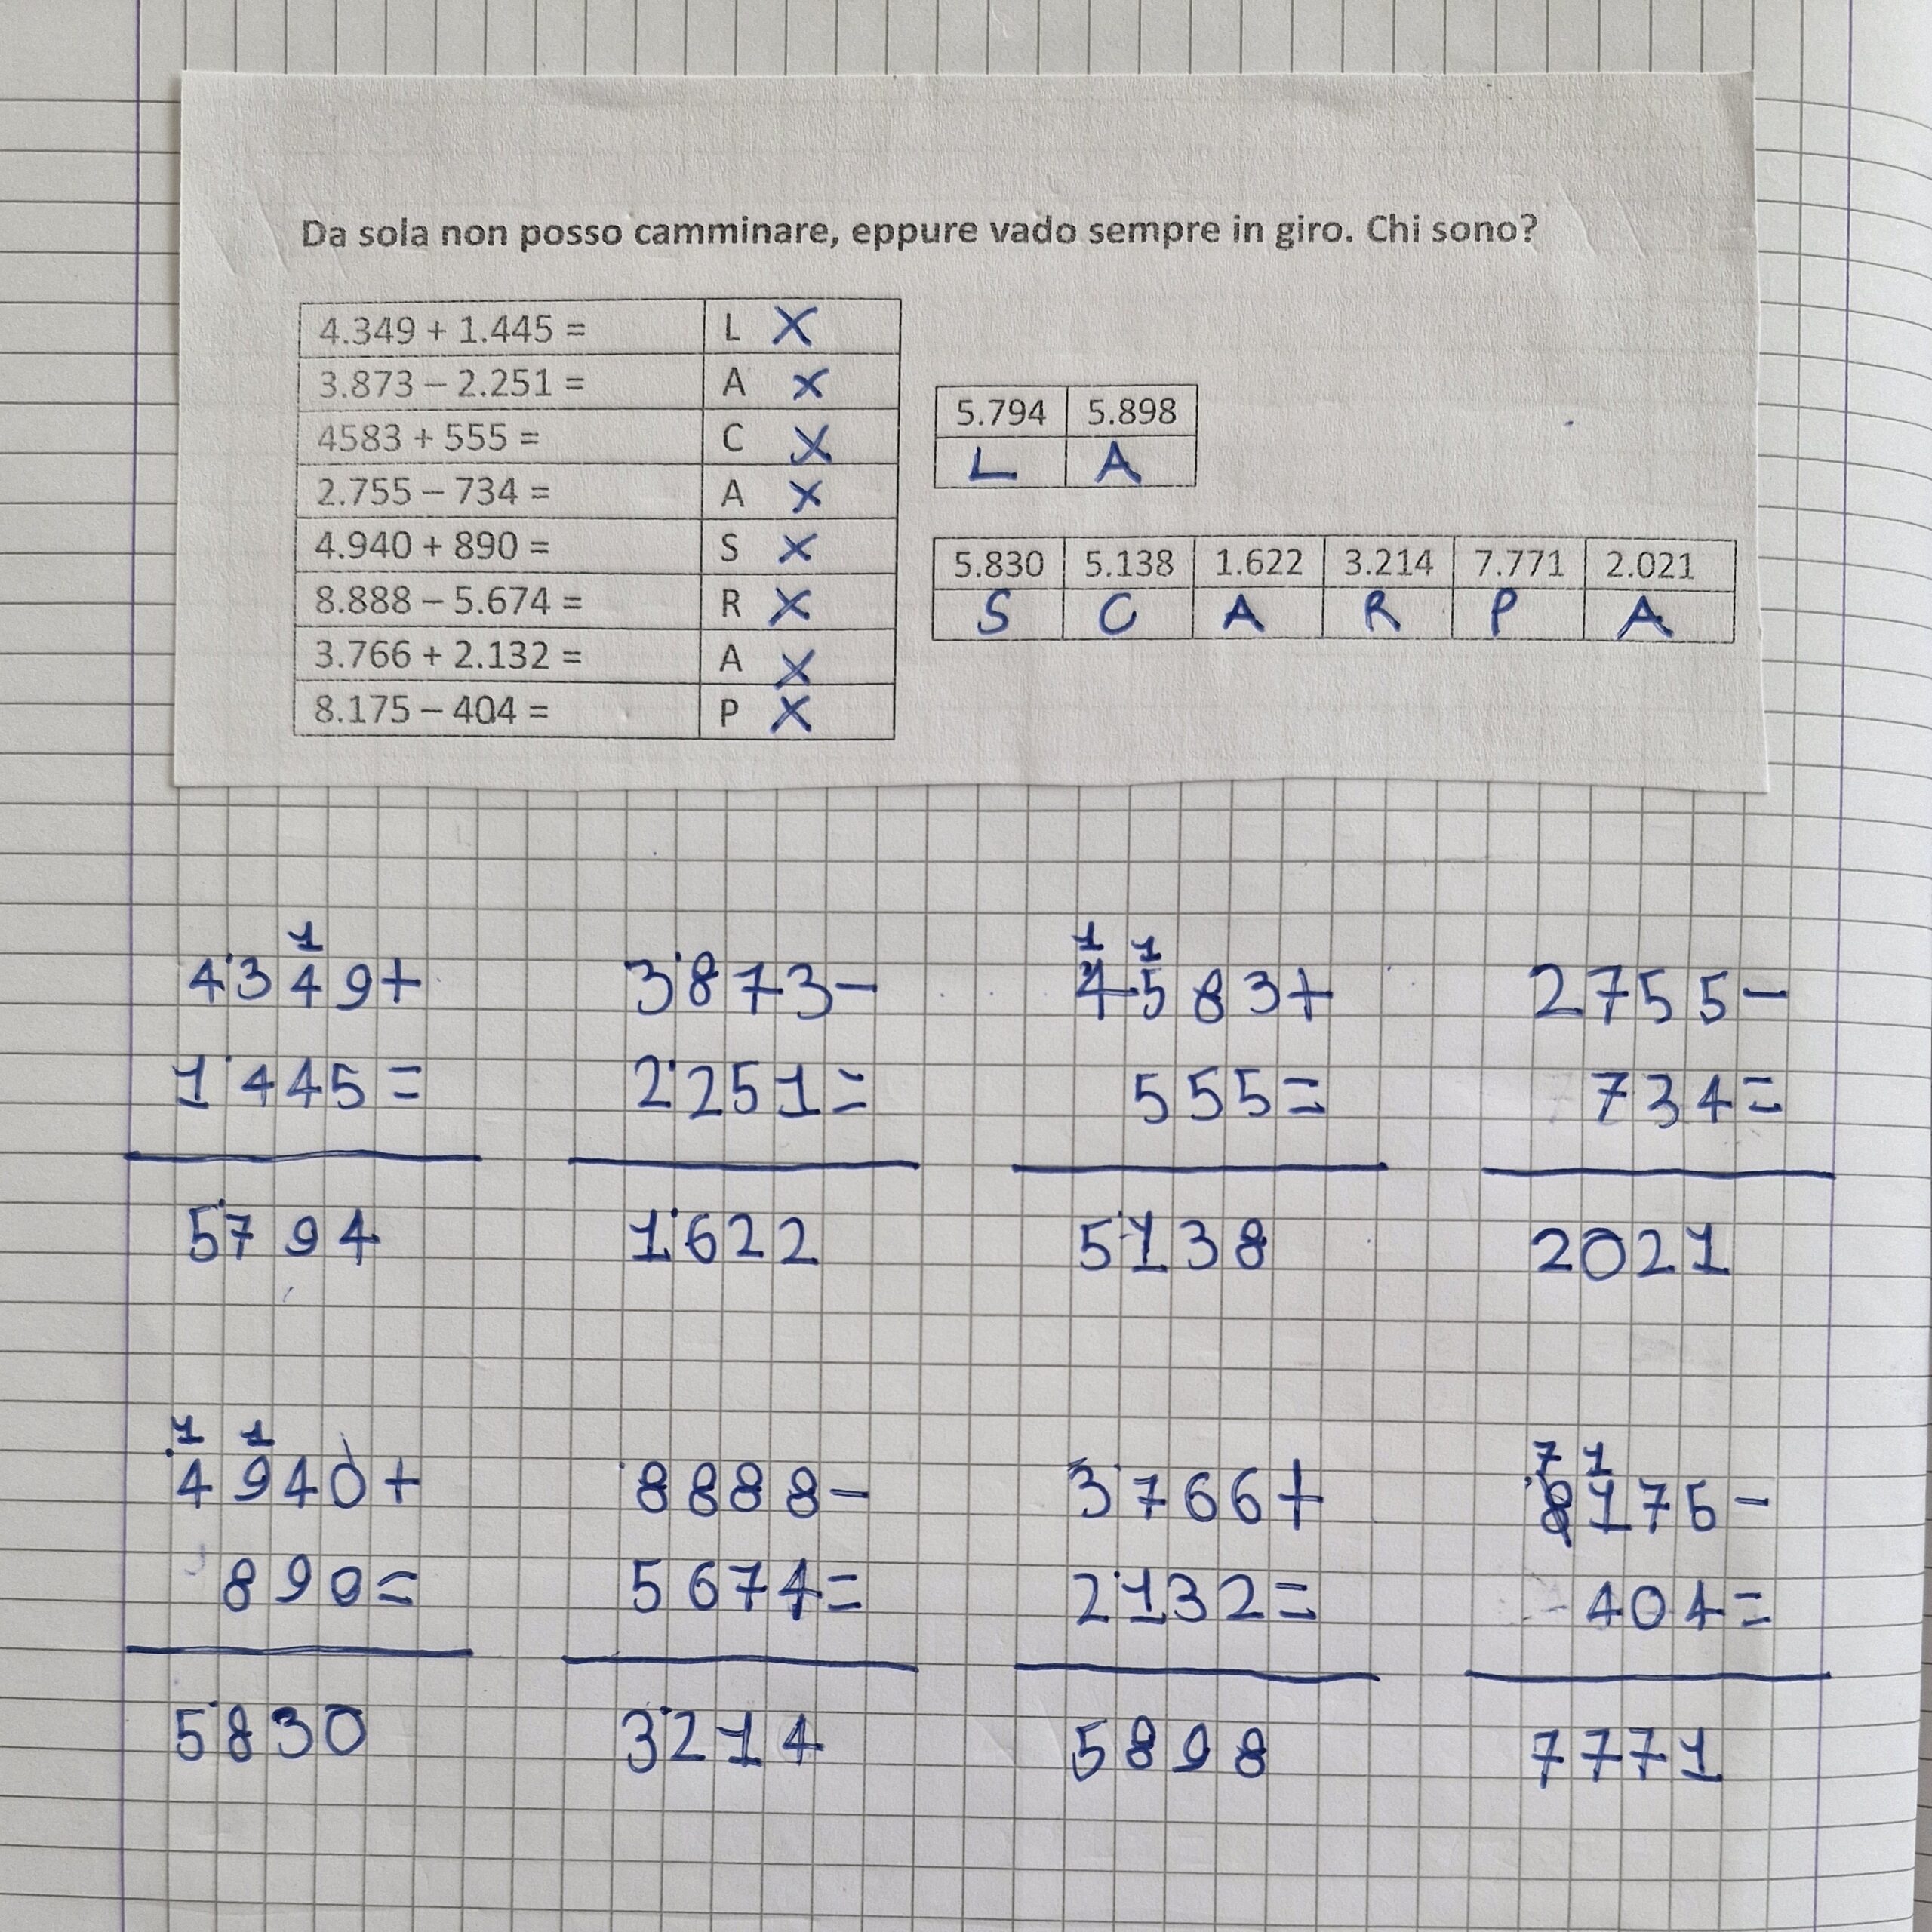 Da sola non posso camminare, eppure vado sempre in giro. Chi sono?
4.349 + 1.445 = L X
3.873 – 2.251 = A X
4583 + 555 = C X
2.755 – 734 = A X
4.940 + 890 = S X
8.888 – 5.674 = R X
3.766 + 2.132 = A X
8.175 – 404 = P X
5.794 5.898
L A
5.830 5.138 1.622 3.214 7.771 2.021
S C A R P A
1
4˙349+
1˙445=
5˙794
3˙873-
2˙251=
1˙622
1 1
4583+
555=
5˙138
2755-
734=
2021
1 1
4940+
890=
5˙830
8888-
5674=
3˙214
3˙766+
2˙132=
5898
7 1
8175-
404=
7771